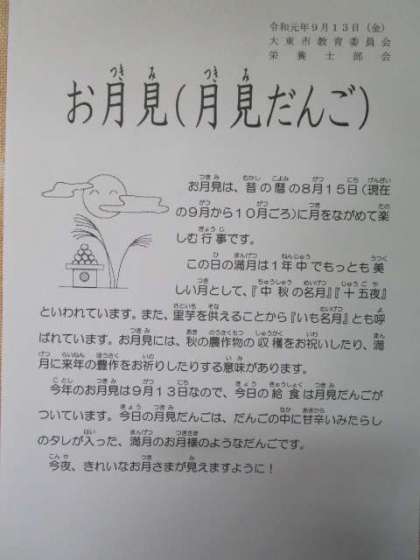 令和元年９月１３日（金）
大東市教育委員会
栄養士部会
お月見（月見だんご）
お月見は、昔の暦の８月１５日（現在
の９月から１０月ごろ）に月をながめて楽
しむ行事です。
この日の満月は１年中でもっとも美
しい月として、『中秋の名月』『十五夜』
といわれています。また、里芋を供えることから『いも名月』とも呼
ばれています。お月見には、秋の農作物の収穫をお祝いしたり、満
月に来年の豊作をお祈りしたりする意味があります。
今年のお月見は９月１３日なので、今日の給食は月見だんごが
ついています。今日の月見だんごは、だんごの中に甘辛いみたらし
のタレが入った、満月のお月様のようなだんごです。
今夜、きれいなお月さまが見えますように！